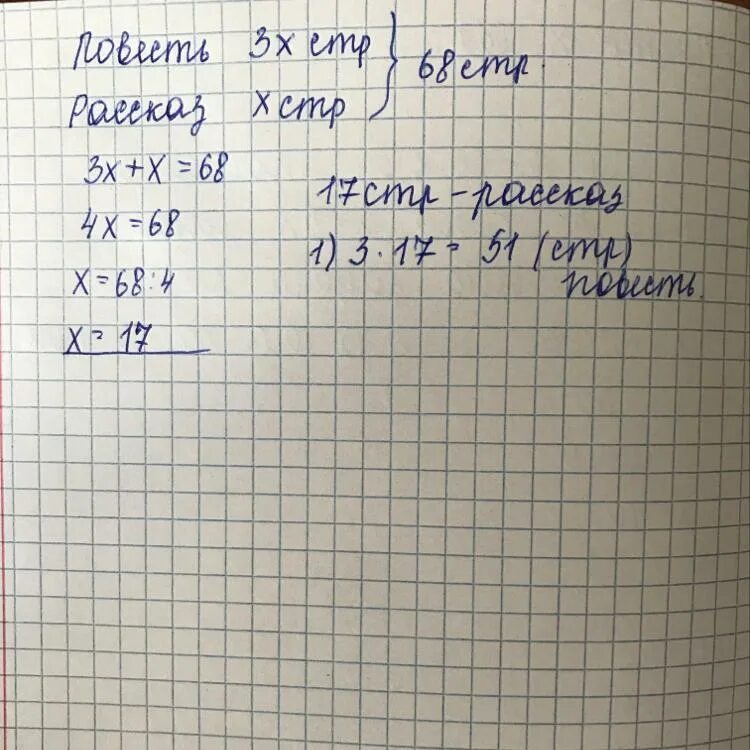 Повесть 3х стр } 68 стр.
Рассказ х стр
3х + х = 68
4х = 68
х = 68 : 4
х = 17
17 стр - рассказ
1) 3 · 17 = 51 (стр)
повесть.